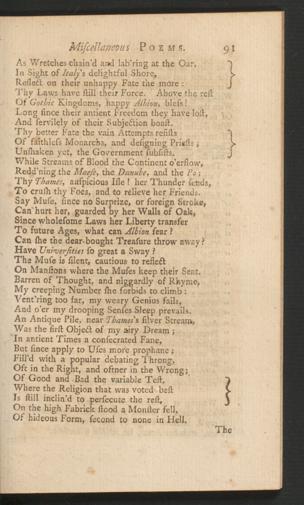 Miscellaneous POEMS. 91
As Wretches chain'd and lab'ring at the Oar,
In Sight of Italy's delightful Shore,
Reflect on their unhappy Fate the more:
Thy Laws have still their Force. Above the rest
Of Gothic Kingdoms, happy Albion, blest!
Long since their antient Freedom they have lost,
And servilely of their Subjection boast.
Thy better Fate the vain Attempts resists
Of faithless Monarchs, and designing Priests;
Unshaken yet, the Government subsists.
While Streams of Blood the Continent o'erflow,
Redd'ning the Maese, the Danube, and the Po;
Thy Thames, auspicious Isle! her Thunder sends,
To crush thy Foes, and to relieve her Friends.
Say Muse, since no Surprize, or foreign Stroke,
Can hurt her, guarded by her Walls of Oak,
Since wholesome Laws her Liberty transfer
To future Ages, what can Albion fear?
Can she the dear-bought Treasure throw away?
Have Universities so great a Sway?
The Muse is silent, cautious to reflect
On Mansions where the Muses keep their Seat.
Barren of Thought, and niggardly of Rhyme,
My creeping Number she forbids to climb:
Vent'ring too far, my weary Genius fails,
And o'er my drooping Senses Sleep prevails.
An Antique Pile, near Thames's silver Stream,
Was the first Object of my airy Dream;
In antient Times a consecrated Fane,
But since apply'd to Uses more prophane;
Fill'd with a popular debating Throng,
Oft in the Right, and oftner in the Wrong;
Of Good and Bad the variable Test,
Where the Religion that was voted best
Is still inclin'd to persecute the rest,
On the high Fabrick stood a Monster fell,
Of hideous Form, second to none in Hell.
The